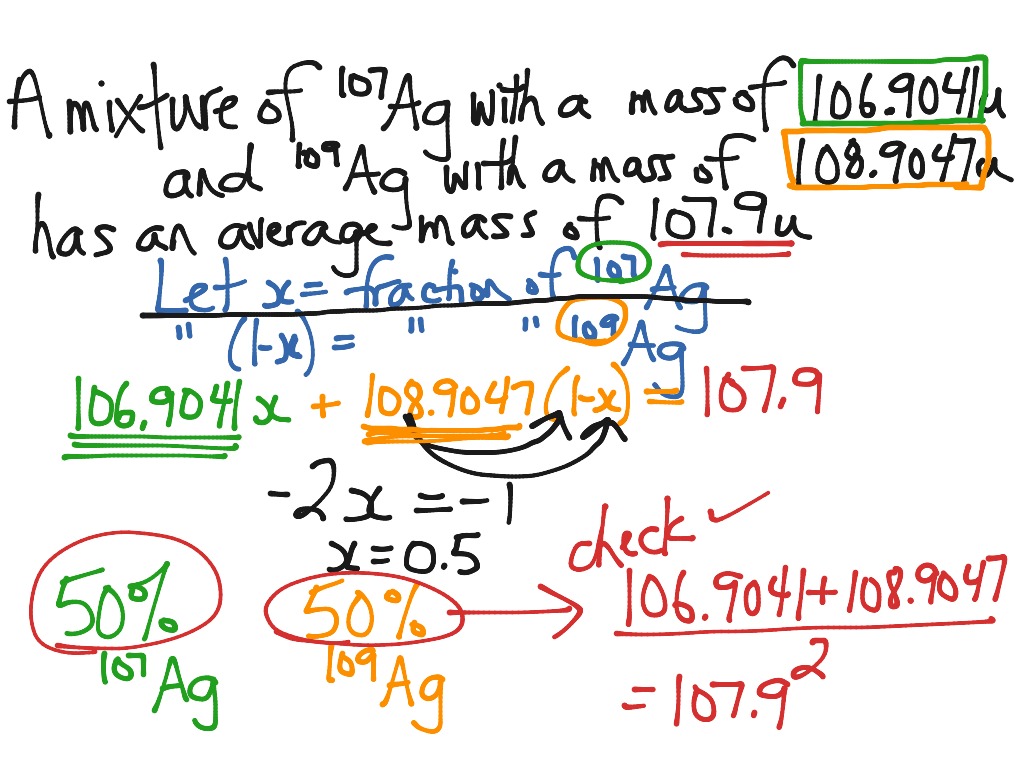 A mixture of ¹⁰⁷Ag with a mass of 106.9041u
and ¹⁰⁹Ag with a mass of 108.9047u
has an average mass of 107.9u
Let x = fraction of ¹⁰⁷Ag
" (1-x) = " " ¹⁰⁹Ag
106.9041x + 108.9047(1-x) = 107.9
-2x = -1
x = 0.5
check ✓
50% 50% → 106.9041+108.9047
2
¹⁰⁷Ag ¹⁰⁹Ag = 107.9